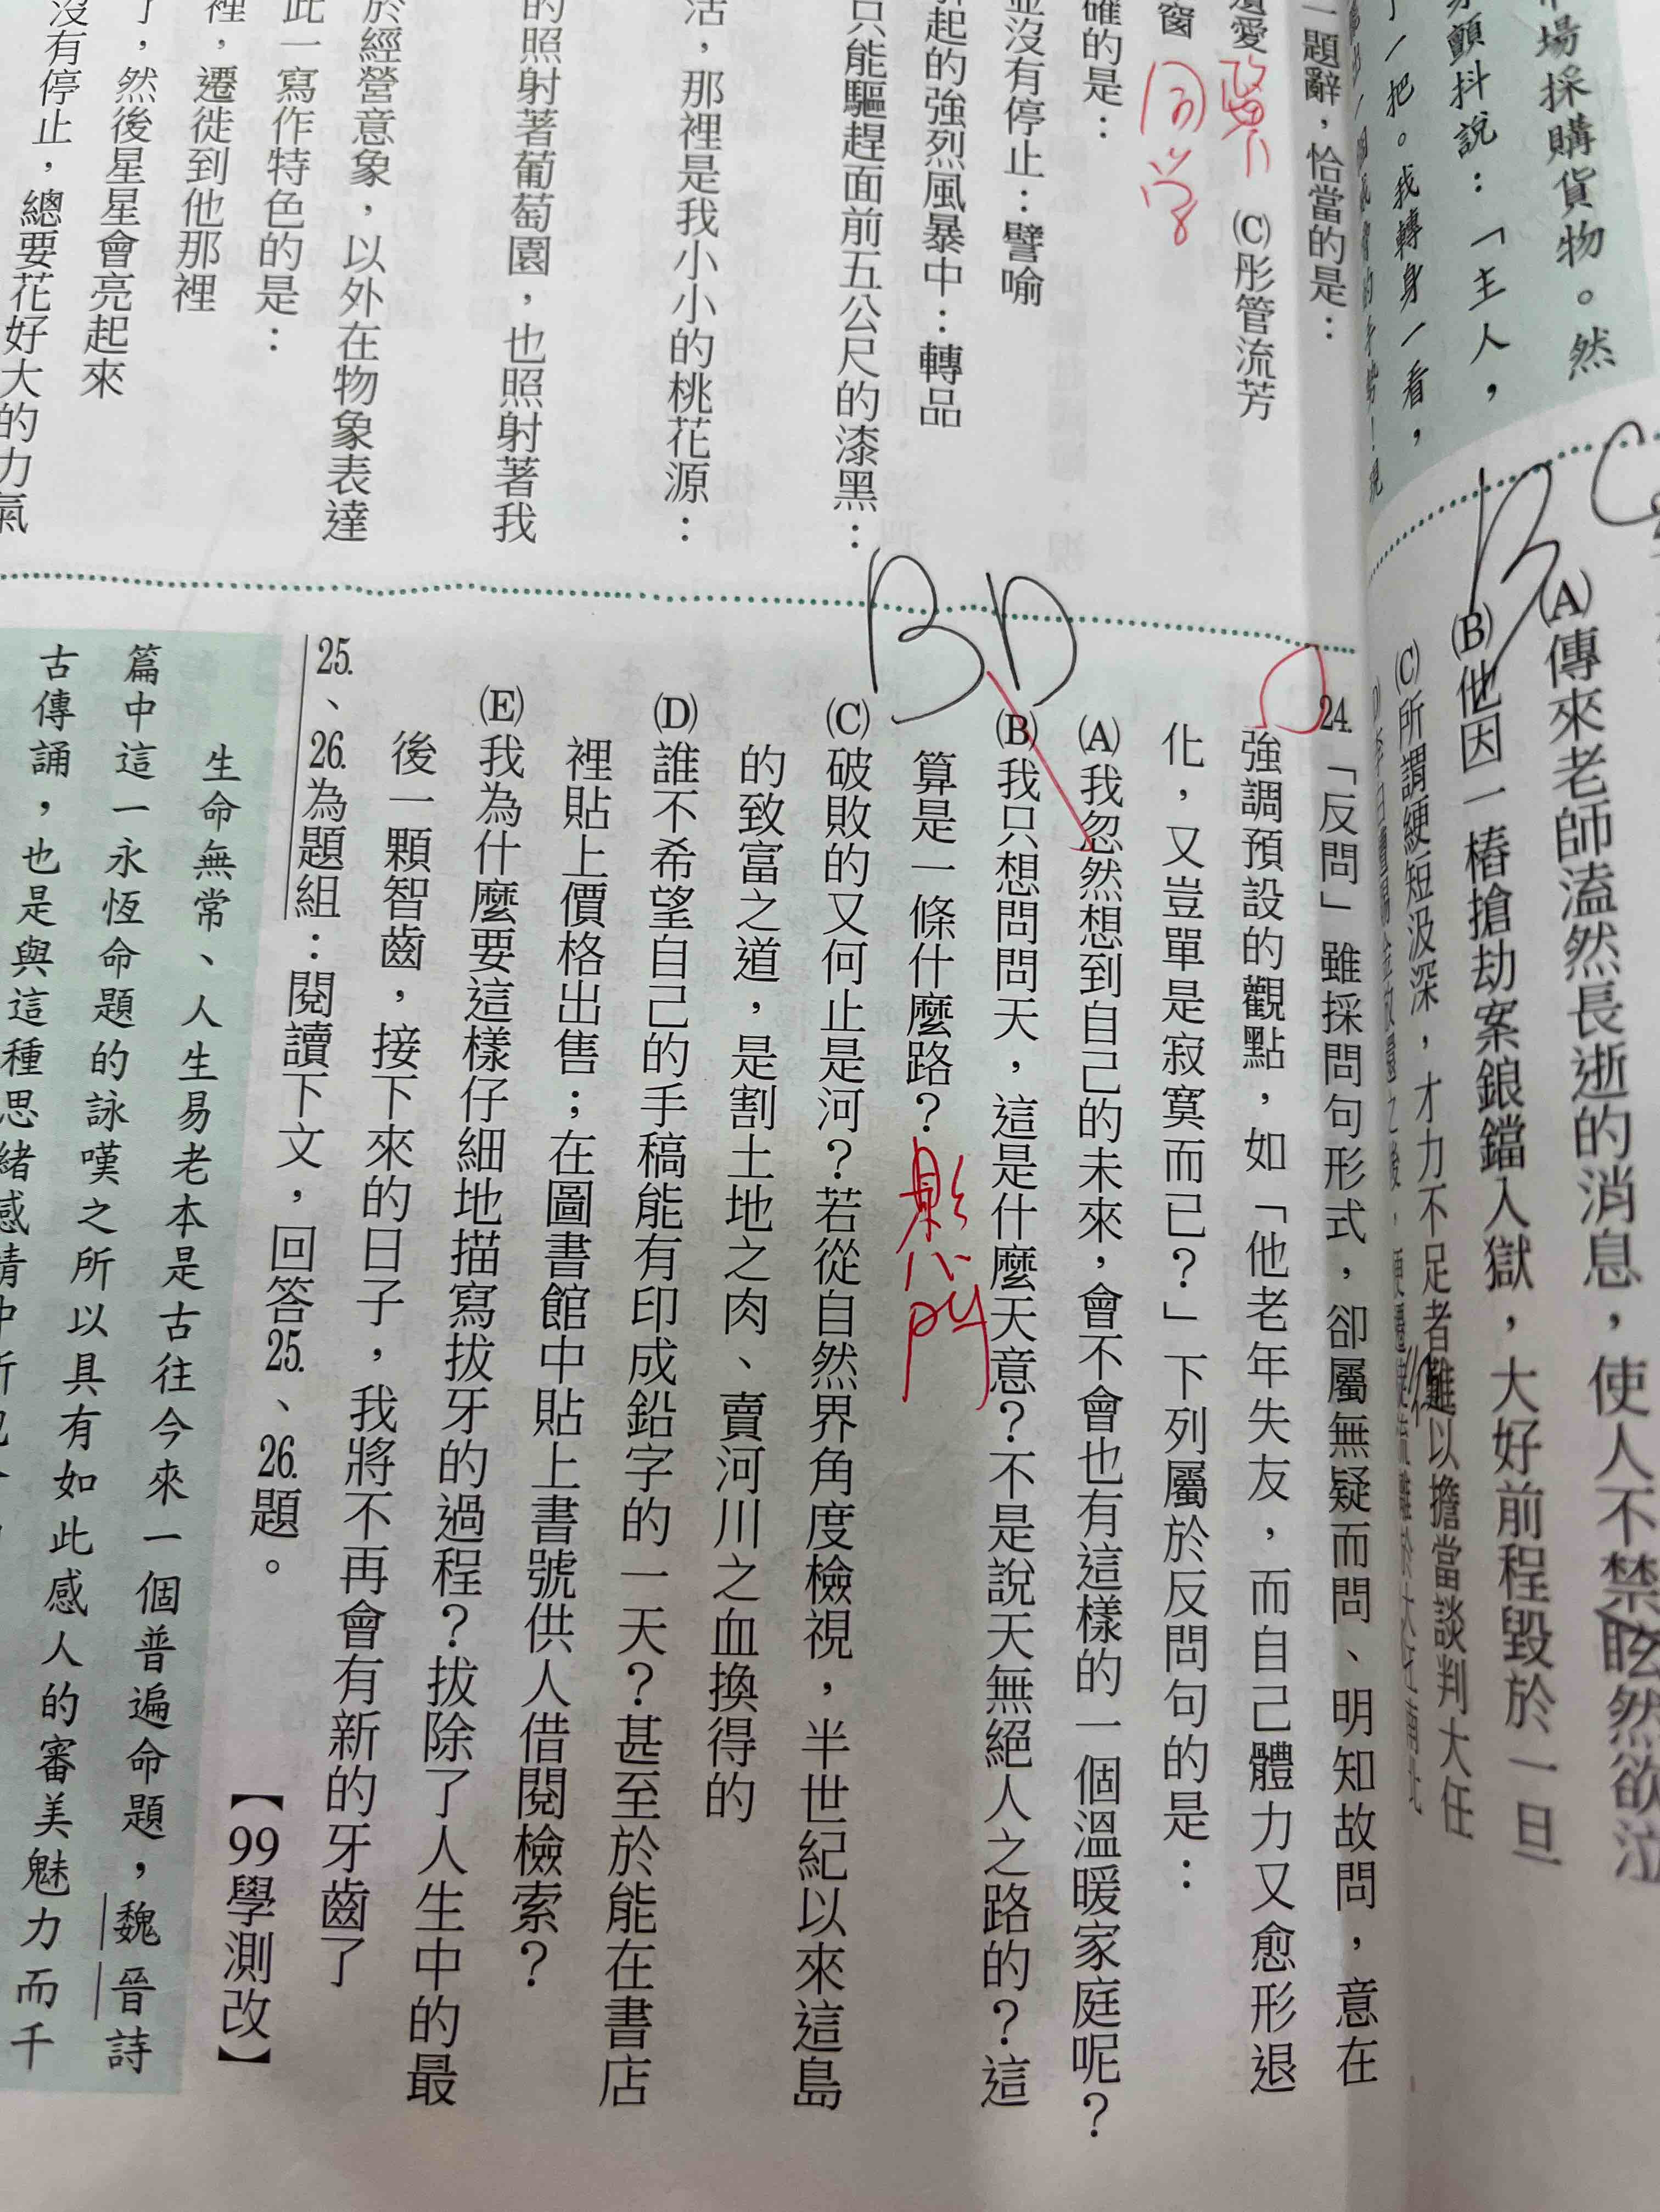 市場採購貨物。然
身顫抖說：「主人，
了一把。我轉身一看，
C
(A)傳來老師溘然長逝的消息，使人不禁眩然欲泣
B
(B)他因一樁搶劫案鋃鐺入獄，大好前程毀於一旦
(C)所謂綆短汲深，才力不足者難以擔當談判大任
一題辭，恰當的是：
遺愛 (C)彤管流芳
窗 同學
確的是：
並沒有停止：譬喻
引起的強烈風暴中：轉品
只能驅趕面前五公尺的漆黑：
活，那裡是我小小的桃花源：
的照射著葡萄園，也照射著我
於經營意象，以外在物象表達
此一寫作特色的是：
裡，遷徙到他那裡
了，然後星星會亮起來
沒有停止，總要花好大的力氣
BD
24.「反問」雖採問句形式，卻屬無疑而問、明知故問，意在
強調預設的觀點，如「他老年失友，而自己體力又愈形退
化，又豈單是寂寞而已？」下列屬於反問句的是：
(A)我忽然想到自己的未來，會不會也有這樣的一個溫暖家庭呢？
(B)我只想問問天，這是什麼天意？不是說天無絕人之路的？這
算是一條什麼路？
(C)破敗的又何止是河？若從自然界角度檢視，半世紀以來這島
的致富之道，是割土地之肉、賣河川之血換得的
(D)誰不希望自己的手稿能有印成鉛字的一天？甚至於能在書店
裡貼上價格出售；在圖書館中貼上書號供人借閱檢索？
(E)我為什麼要這樣仔細地描寫拔牙的過程？拔除了人生中的最
後一顆智齒，接下來的日子，我將不再會有新的牙齒了
25.、26.為題組：閱讀下文，回答25.、26.題。
【99學測改】
生命無常、人生易老本是古往今來一個普遍命題，魏晉詩
篇中這一永恆命題的詠嘆之所以具有如此感人的審美魅力而千
古傳誦，也是與這種思緒感情中所